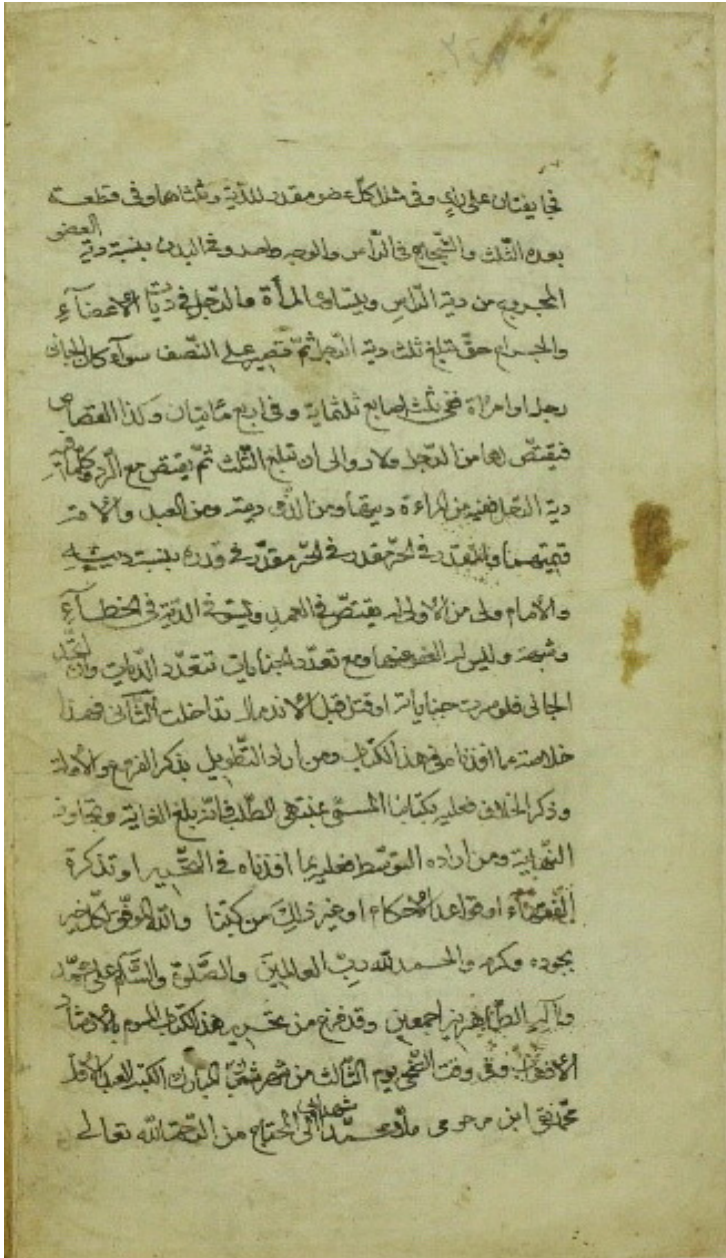 فجايفتان على راى وفى شلل كل عضو مقدر الدية وثلثاها وفى قطعه
بعده الثلث والشجاج فى الراس والوجه واحد وفى البدن بنسبة دية العضو
المجروح من دية الراس ويتساوى المرأة والرجل فى ديات الاعضآء
والجراح حتى تبلغ ثلث دية الرجل ثم تصير على النصف سوآء كان الجانى
رجلا او امراة ففى ثلث اصابع ثلثماية وفى اربع مأتيان وكذا القصاص
فيقتص لها من الرجل ولا رد الى ان تبلغ الثلث ثم يقتص مع الرد وكلما فيه
دية الرجل ففيه من المراءة ديتها ومن الذمى ديته ومن العبد والامة
قيمتهما والمقدر فى الحر مقدر فى قدره بنسبة ديته
والامام ولى من لا ولى له يقتص فى العمد ويستوفى الدية فى الخطآء
وشبهه وليس له العفو عنهما ومع تعدد الجنايات تتعدد الديات وان اتحد
الجانى فلو سرت جناياته او قتل قبل الاندمال تداخلت الثانى فهذا
خلاصة ما افدناه فى هذا الكتاب ومن اراد التطويل بذكر الفروع والادلة
وذكر الخلاف فعليه بكتابنا المسمى بمنتهى المطلب فانه بلغ الغاية وتجاوز
النهاية ومن اراده التوسط فعليه بما افدناه فى التحرير او تذكرة
الفقهآء او قواعد الاحكام او غير ذلك من كتبنا والله الموفق لكل خير
بجوده وكرمه والحمد لله رب العالمين والصلوة والسلام على محمد
وآله الطاهرين اجمعين وقد فرغ من تحرير هذا الكتاب الموسوم بالارشاد
الاذهان وفى وقت الضحى يوم الثالث من شهر شعبان المبارك الكتبه العبد الاقل
محمد تقى ابن مرحومى ملا محمد المحتاج من الرحمة الله تعالى